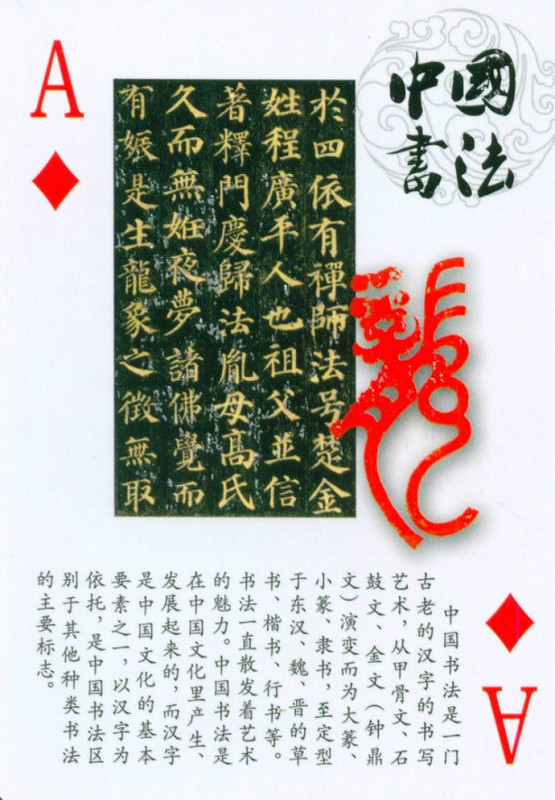 A
中國
書法
扵四依有禪師法号楚金
姓程廣平人也祖父並信
著釋門慶歸法胤母髙氏
久而無姙夜夢諸佛覺而
有娠是生龍象之徵無取
龍
中国书法是一门
古老的汉字的书写
艺术，从甲骨文、石
鼓文、金文（钟鼎
文）演变而为大篆、
小篆、隶书，至定型
于东汉、魏、晋的草
书、楷书、行书等。
书法一直散发着艺术
的魅力。中国书法是
在中国文化里产生、
发展起来的，而汉字
是中国文化的基本
要素之一，以汉字为
依托，是中国书法区
别于其他种类书法
的主要标志。
A